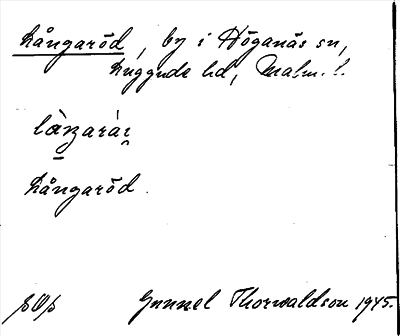 Långaröd, by i Höganäs sn,
Luggude hd, Malm. l.
Långaröd.
Gunnel Thorwaldson 1945.